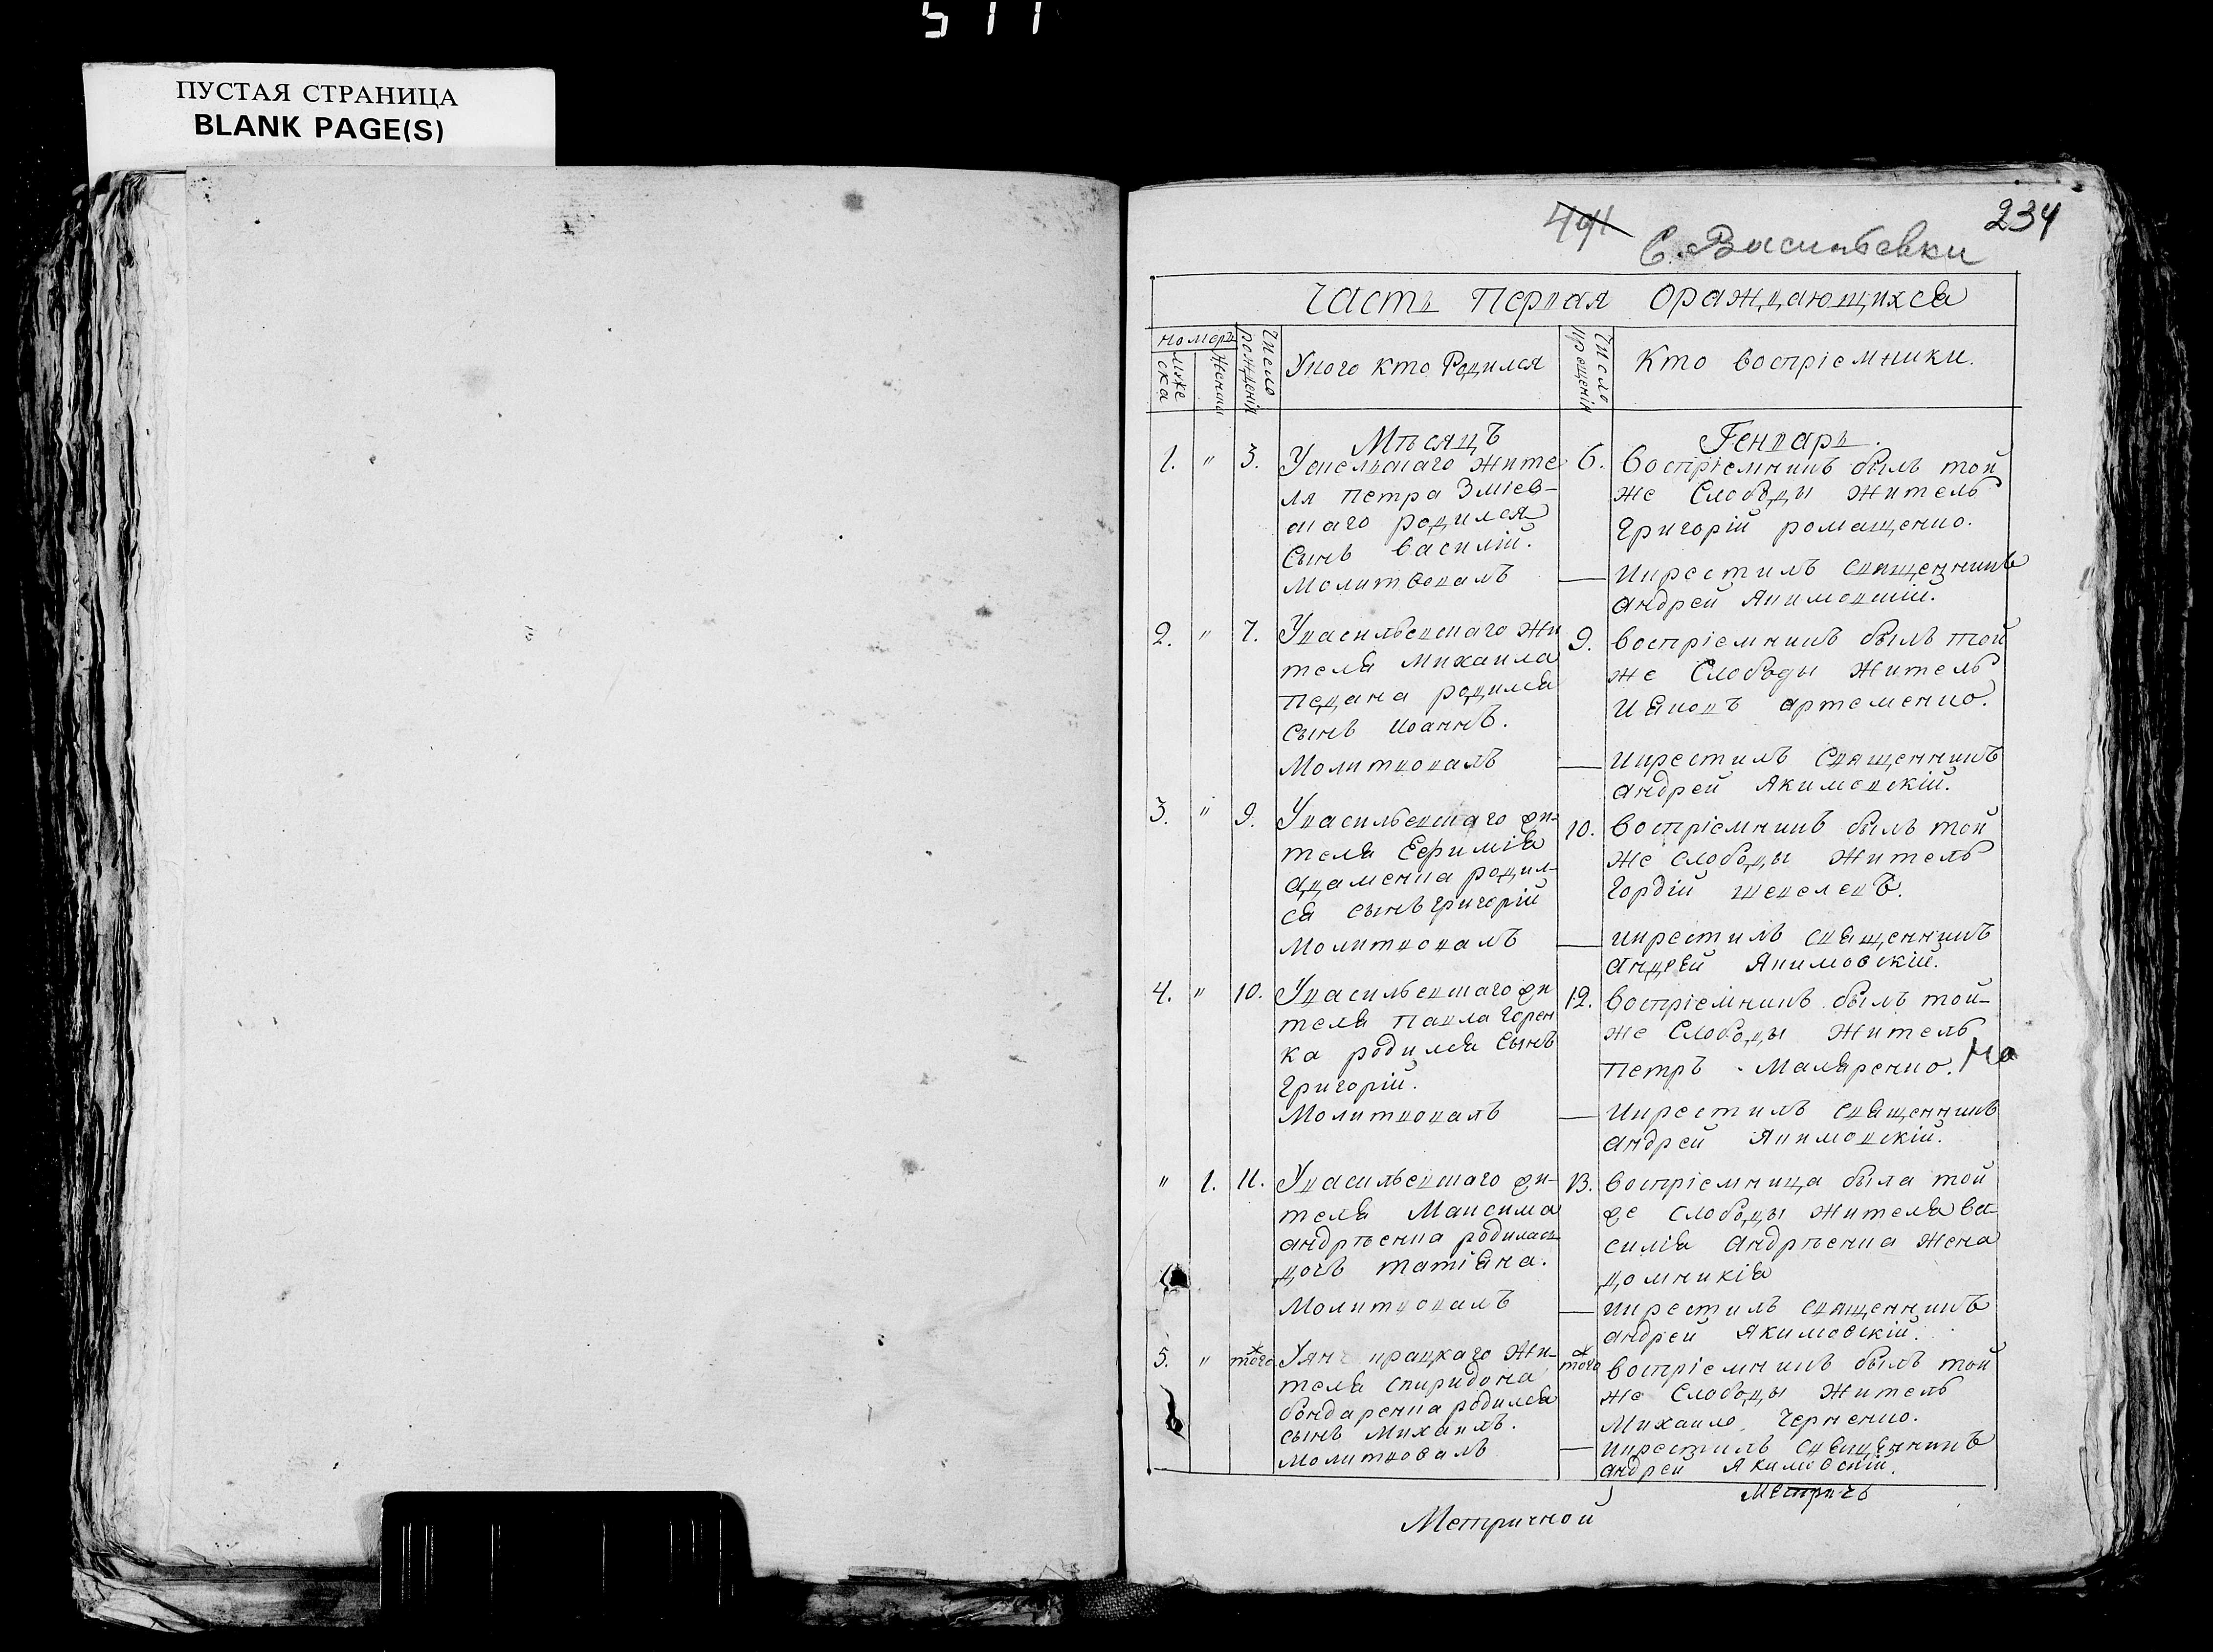 511
ПУСТАЯ СТРАНИЦА
BLANK PAGE(S)
491
234
С. Васильевки
Часть первая ораждающихся
номеръ
муже
ска
женска
Число
рожденія
У кого кто Родился
Число
крещенія
Кто воспріемники.
Мѣсяцъ
Генварь.
1. " 3.
жите
ля петра Зміев-
скаго родился
сынъ василій.
молитвовалъ
6. воспріемникъ былъ той
же Слободы житель
Григорій ромащенко.
— икрестилъ священникъ
андрей Якимовскій.
2. " 7.
Увасильевскаго жи
теля михаила
педана родился
сынъ иоаннъ.
Молитвовалъ
9. воспріемникъ былъ той
же Слободы житель
Ияковъ артеменко.
— икрестилъ Священникъ
андрей Якимовскій.
3. " 9.
Увасильевскаго жи-
теля Ефимія
адаменка родил-
ся сынъ григорій
Молитвовалъ
10. воспріемникъ былъ той
же слободы житель
гордій шевелевъ.
— икрестилъ священникъ
андрей Якимовскій.
4. " 10.
Увасильевскаго жи
теля павла горен
ка родился сынъ
григорій.
Молитвовалъ
12. воспріемникъ былъ той-
же Слободы житель
петръ Маляренко.
— Икрестилъ священникъ
андрей Якимовскій.
" 1. 11.
Увасильевскаго жи-
теля Максима
андрѣенка родилась
дочь татіяна.
Молитвовалъ
13. воспріемница была той
же слободы жителя ва-
силія андрѣенка жена
домникія
— икрестилъ священникъ
андрей якимовскій.
5. " того ж
жи-
теля спиридона
бондаренка родился
сынъ михаилъ.
молитвовалъ
того ж воспріемникъ былъ той
же слободы житель
Михаило Черненко.
— икрестилъ священникъ
андрей якимовскій.
Метричь
Метричной